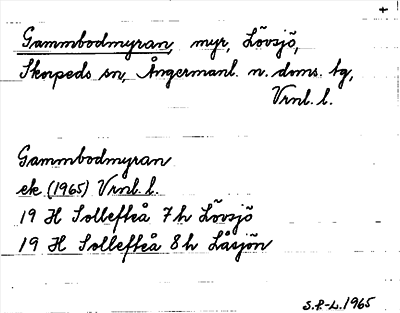 +
Gammbodmyran, myr, Lövsjö,
Skorpeds sn, Ångermanl. n. doms. tg,
Vrnl. l.
Gammbodmyran
ek (1965) Vrnl. l.
19 H Sollefteå 7h Lövsjö
19 H Sollefteå 8h Låsjön
S.P-L. 1965